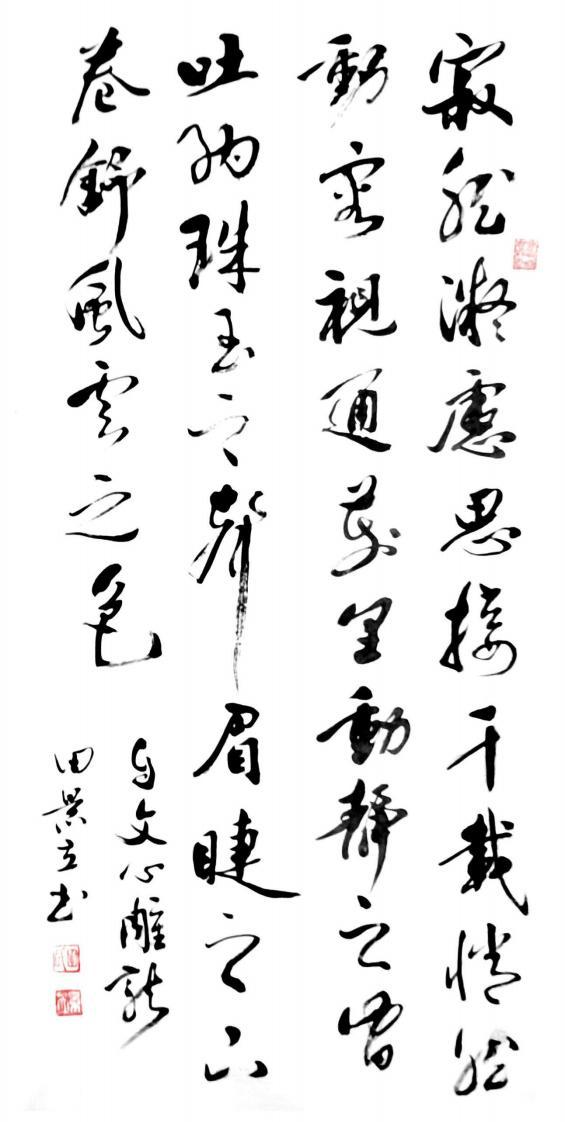 寂然凝慮思接千載悄然
動容視通萬里動靜之間
吐納珠玉之聲眉睫之
卷舒風雲之色
自文心雕龍
田景立书